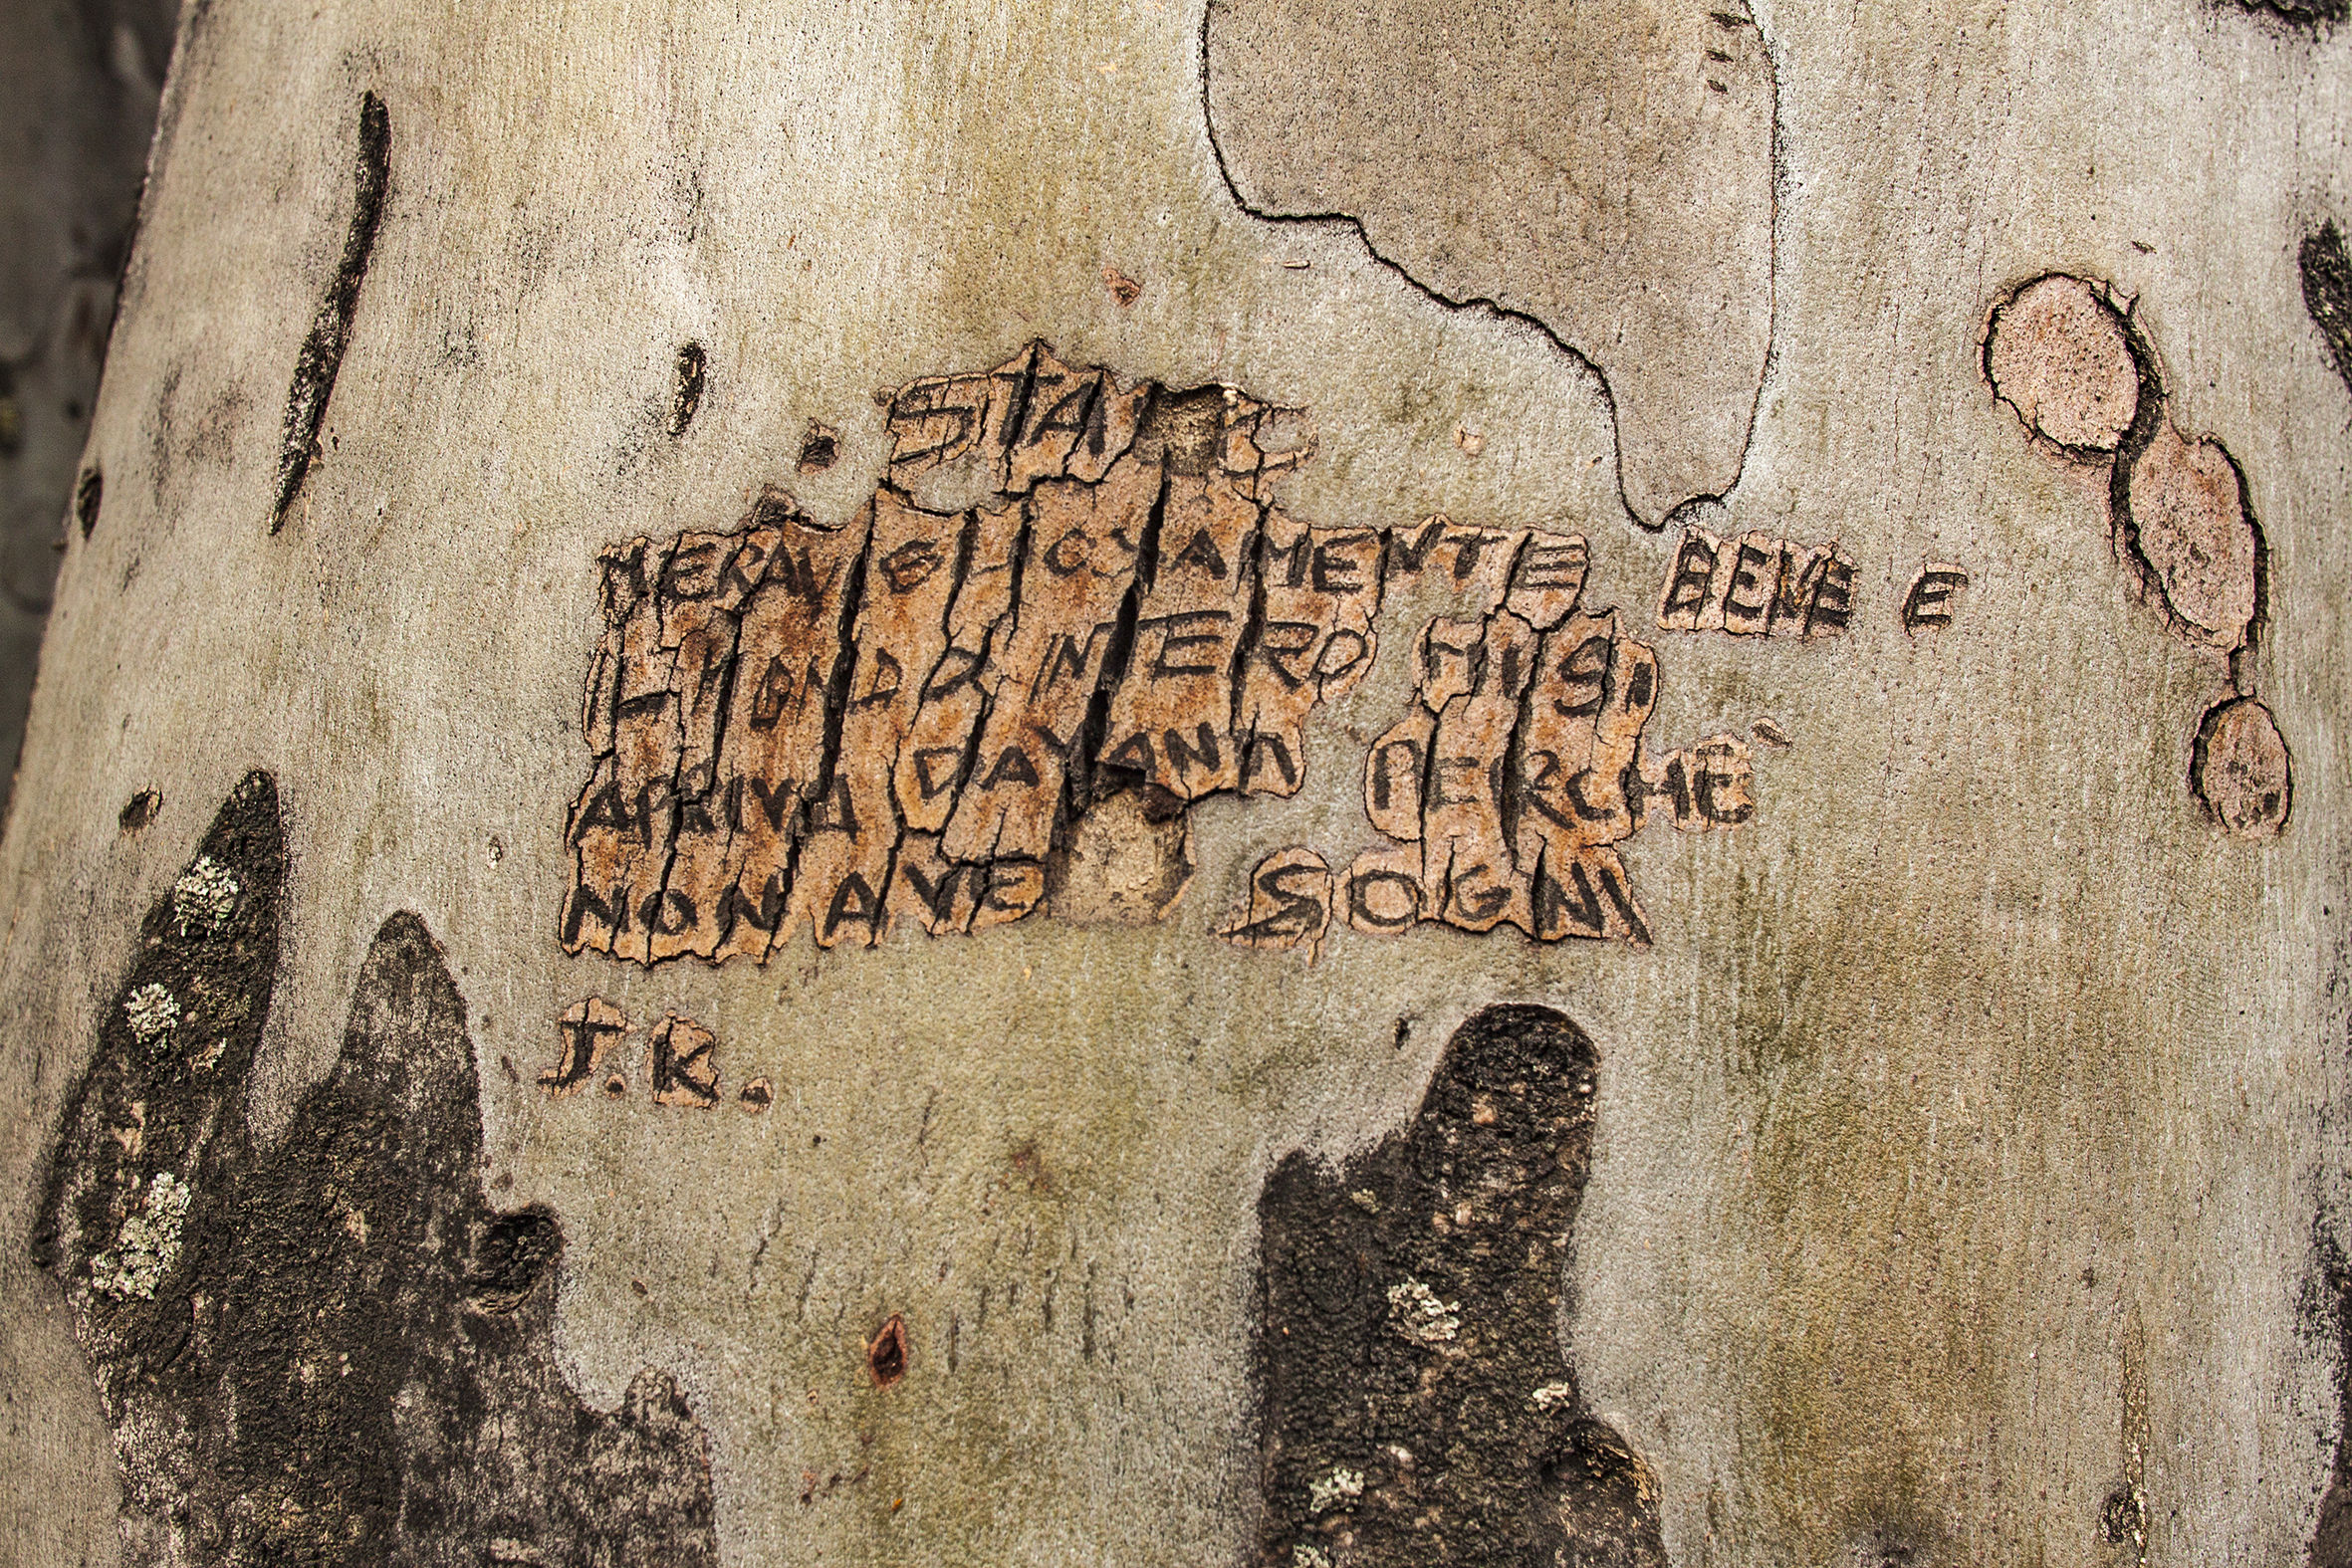 STATE
MERAVIGLIOSAMENTE BENE E
IL MONDO INTERO MI SI
ARRIVA DAVANTI PERCHÈ
NON AVE SOGNI
J.R.